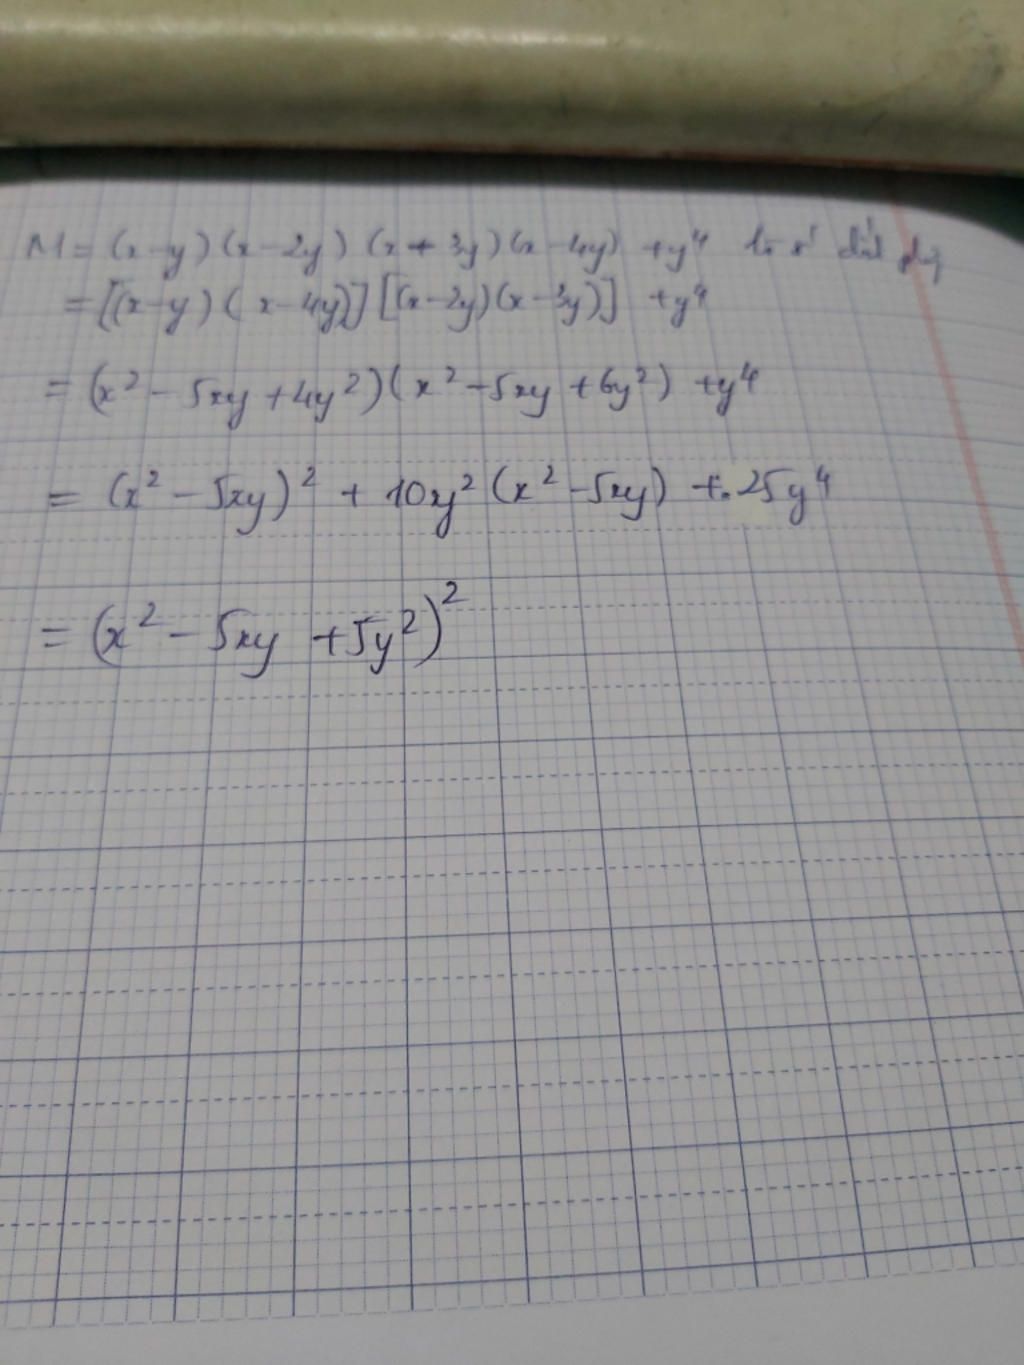 M = (x - y)(x - 2y)(x + 3y)(x - 4y) + y⁴
= [(x - y)(x - 4y)][(x - 2y)(x - 3y)] + y⁴
= (x² - 5xy + 4y²)(x² - 5xy + 6y²) + y⁴
= (x² - 5xy)² + 10y² (x² - 5xy) + 25y⁴
= (x² - 5xy + 5y²)²